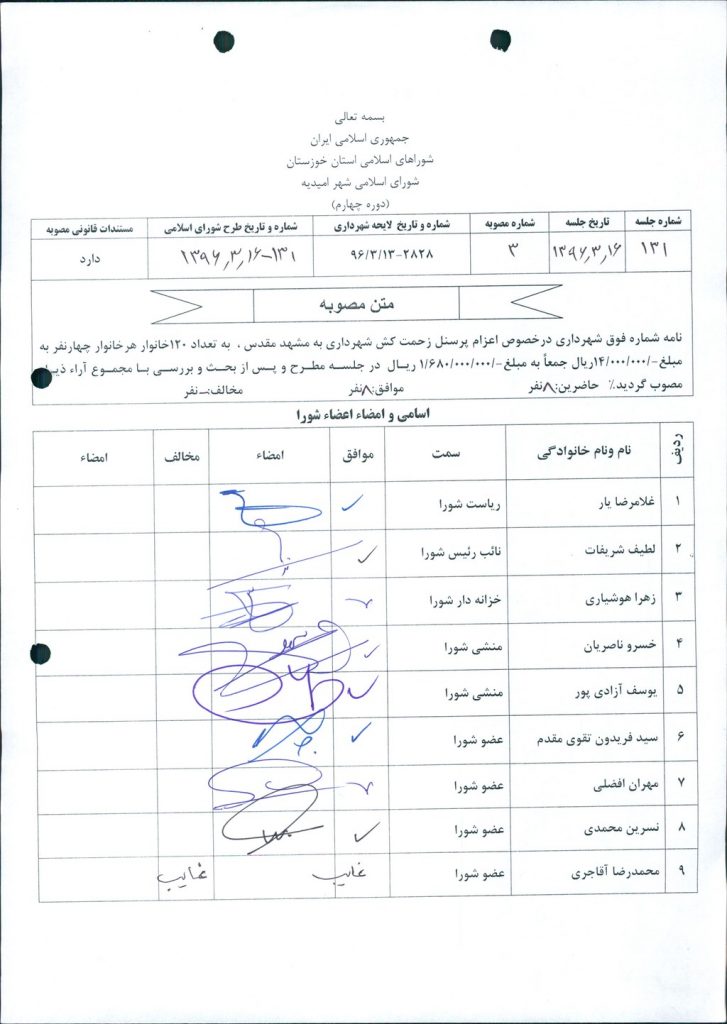 بسمه تعالی
جمهوری اسلامی ایران
شوراهای اسلامی استان خوزستان
شورای اسلامی شهر امیدیه
(دوره چهارم)
شماره جلسه تاریخ جلسه شماره مصوبه شماره و تاریخ لایحه شهرداری شماره و تاریخ طرح شورای اسلامی مستندات قانونی مصوبه
۱۳۱ ۱۳۹۶٫۳٫۱۶ ۳ ۹۶/۳/۱۳-۲۸۲۸ ۱۳۹۶٫۳٫۱۶-۱۳۱ دارد
متن مصوبه
نامه شماره فوق شهرداری درخصوص اعزام پرسنل زحمت کش شهرداری به مشهد مقدس ، به تعداد ۱۲۰خانوار هرخانوار چهارنفر به
مبلغ-/۱۴/۰۰۰/۰۰۰ریال جمعاً به مبلغ-/۱/۶۸۰/۰۰۰/۰۰۰ ریال در جلسه مطرح و پس از بحث و بررسی با مجموع آراء ذیل
مصوب گردید.٪ حاضرین:۸نفر موافق:۸نفر مخالف:-نفر
اسامی و امضاء اعضاء شورا
ردیف نام ونام خانوادگی سمت موافق امضاء مخالف امضاء
۱ غلامرضا یار ریاست شورا ✓
۲ لطیف شریفات نائب رئیس شورا ✓
۳ زهرا هوشیاری خزانه دار شورا ✓
۴ خسرو ناصریان منشی شورا ✓
۵ یوسف آزادی پور منشی شورا ✓
۶ سید فریدون تقوی مقدم عضو شورا ✓
۷ مهران افضلی عضو شورا ✓
۸ نسرین محمدی عضو شورا ✓
۹ محمدرضا آقاجری عضو شورا غایب غایب